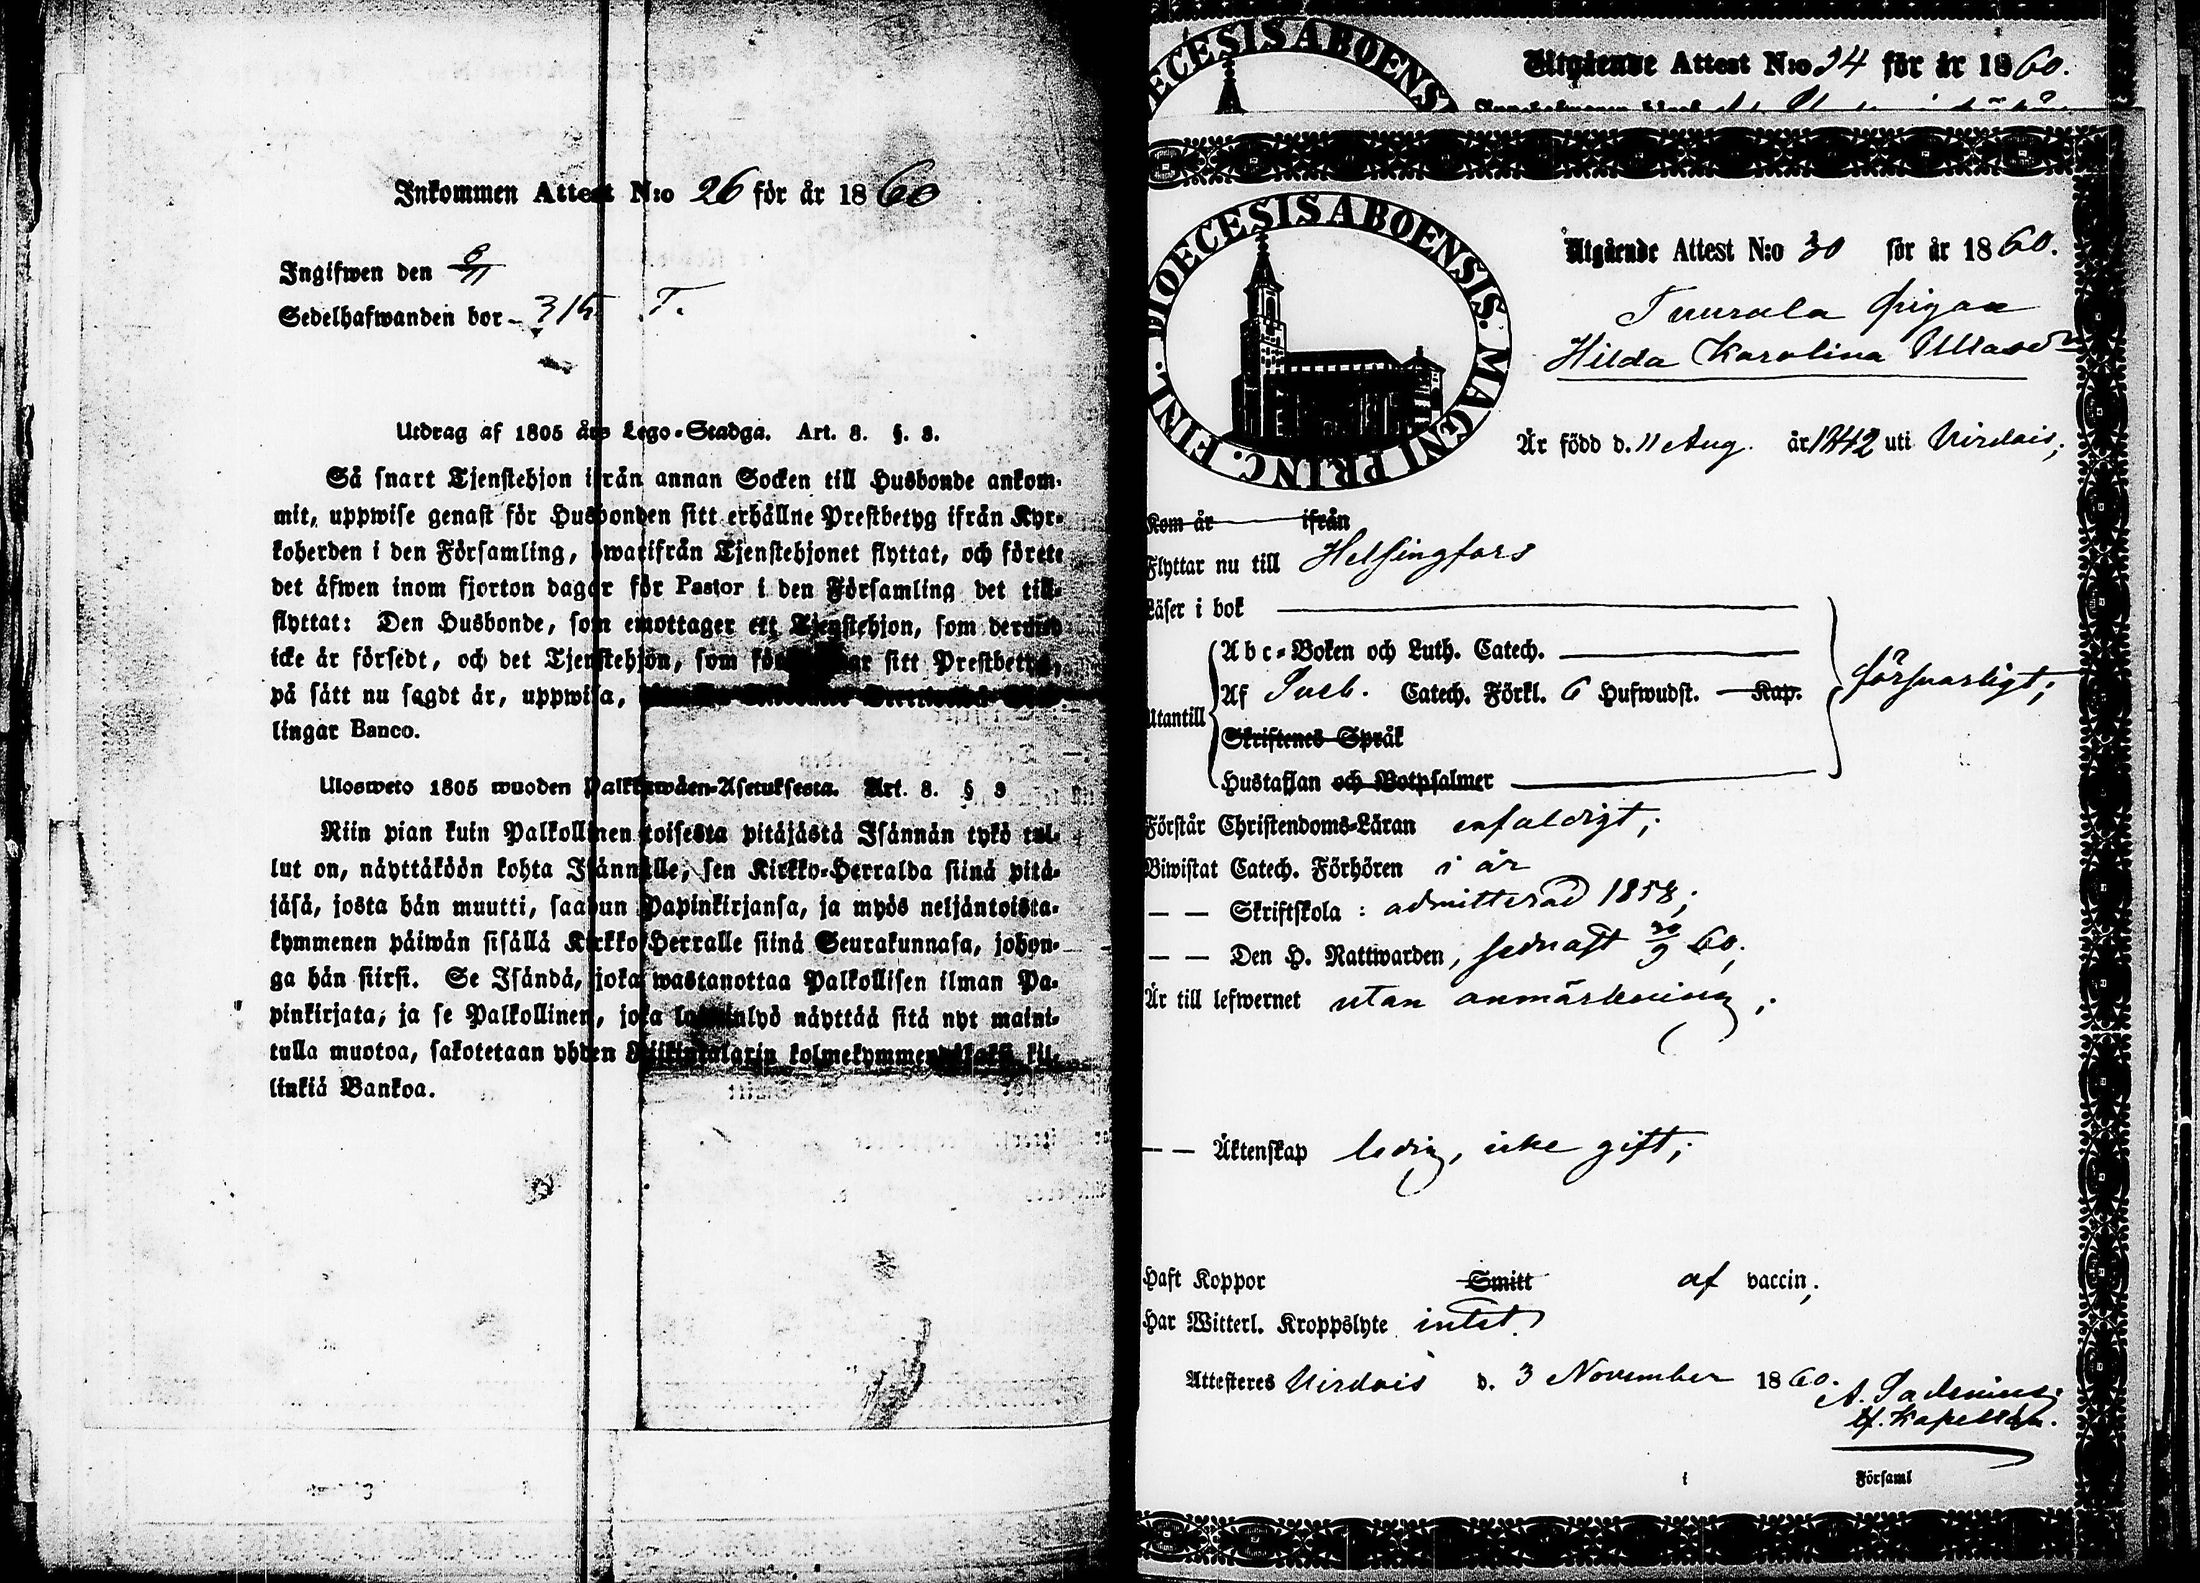 Inkommen Attest N:o 26 för år 1860
Ingifwen den 6/11
Sedelhafwanden bor
Utdrag af 1805 års Lego-Stadga. Art. 8. §. 3.
Så snart Tjenstehjon ifrån annan Socken till Husbonde ankom-
mit, uppwise genast för Husbonden sitt erhållne Prestbetyg ifrån Kyr-
koherden i den Församling, hwarifrån Tjenstehjonet flyttat, och förete
det äfwen inom fjorton dagar för Pastor i den Församling det till-
flyttat: Den Husbonde, som emottager ett Tjenstehjon, som dermed
icke är försedt, och det Tjenstehjon, som sitt Prestbetyg,
på sätt nu sagdt är, uppwisa,
lingar Banco.
Ulosweto 1805 wuoden Palkkawäen-Asetuksesta. Art. 8. § 3
Niin pian kuin Palkollinen toisesta pitäjästä Isännän tykö tul-
lut on, näyttäköön kohta Isännälle, sen Kirkko-Herralda siinä pitä-
jäsä, josta hän muutti, saadun Papinkirjansa, ja myös neljäntoista-
kymmenen päiwän sisällä Kirkko-Herralle siinä Seurakunnasa, johon-
ga hän siirsi. Se Isändä, joka wastanottaa Palkollisen ilman Pa-
pinkirjata, ja se Palkollinen, joka laiminlyö näyttää sitä nyt maini-
tulla muotoa, sakotetaan yhden Riikintalarin kolmekymmendäkaksi kil-
linkiä Bankoa.
Utgående Attest N:o 34 för år 1860.
DIOECESIS ABOENSIS. MAGNI PRINC. FINL.
Utgående Attest N:o 30 för år 1860.
Tuurala Pigan
Hilda Karolina Ullasdr
Är född d. 11 Aug. år 1842 uti Virdois;
Kom år ifrån
Flyttar nu till Helsingfors
Läser i bok
Abc-Boken och Luth. Catech.
Af Sveb. Catech. Förkl. 6 Hufwudst. Kap. försvarligt;
Utantill
Skriftenes Språk
Hustaflan och Botpsalmer
Förstår Christendoms-Läran enfaldigt;
Biwistat Catech. Förhören i år
— — Skriftskola: admitterad 1858;
— — Den H. Nattwarden, sednast 30/9 60;
Är till lefwernet utan anmärkning;
— — Äktenskap ledig, icke gift;
Haft Koppor Smitt af vaccin;
Har Witterl. Kroppslyte intet.
Attesteres Virdois d. 3 November 1860.
A.
Kapellan.
i Församl